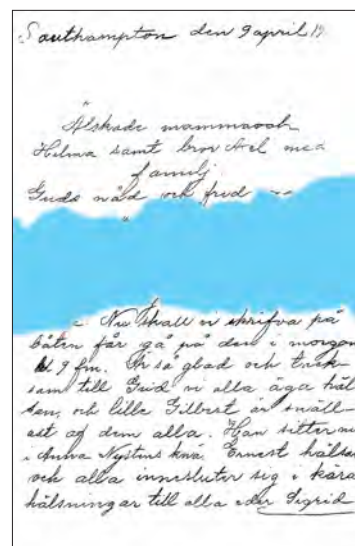 Southampton den 9 april 19
Älskade mamma och
Hilma samt bror Axel med
familj
Guds nåd och frid
Nu skall vi skrifva på
båten får gå på den i morgon
kl 9 fm. Är så glad och tack-
sam till Gud vi alla äga häl-
san, och lille Gilbert är snäll-
ast af dem alla. Han sitter nu
i Anna Nystens knä. Ernest hälsar
och alla innesluter sig i kära
hälsningar till alla eder Sigrid